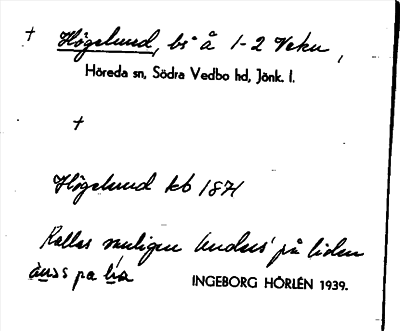 † Högelund, bs å 1-2 Veku,
Höreda sn, Södra Vedbo hd, Jönk. l.
†
Högelund kb 1871
Kallas vanligen Anders' på liden
änds pa lia
INGEBORG HÖRLÉN 1939.